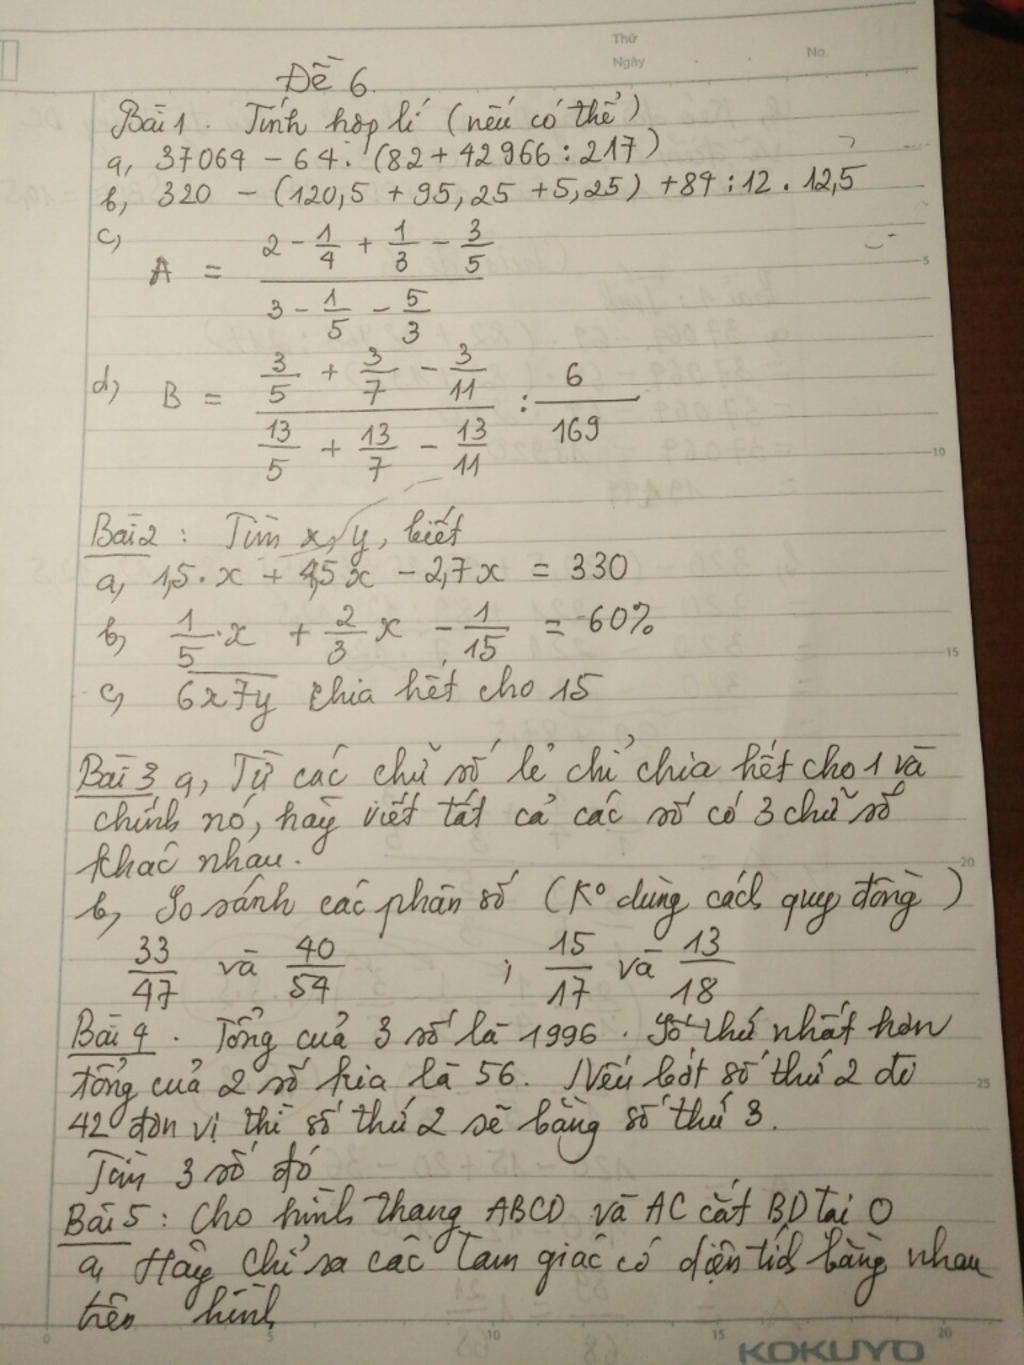 Thứ
Ngày
No.
Đề 6.
Bài 1. Tính hợp lí (nếu có thể)
a, 37064 - 64 . (82 + 42966 : 217)
b, 320 - (120,5 + 95,25 + 5,25) + 84 : 12 . 12,5
c, A = \frac{2 - \frac{1}{4} + \frac{1}{3} - \frac{3}{5}}{3 - \frac{1}{5} - \frac{5}{3}}
d, B = \frac{\frac{3}{5} + \frac{3}{7} - \frac{3}{11}}{\frac{13}{5} + \frac{13}{7} - \frac{13}{11}} : \frac{6}{169}
Bài 2 : Tìm x, y, biết
a, 1,5 . x + 4,5 x - 2,7x = 330
b, \frac{1}{5} . x + \frac{2}{3} x - \frac{1}{15} = 60%
c, \overline{6x7y} chia hết cho 15
Bài 3 a, Từ các chữ số lẻ chỉ chia hết cho 1 và
chính nó, hãy viết tất cả các số có 3 chữ số
khác nhau.
b, So sánh các phân số (K° dùng cách quy đồng)
\frac{33}{47} và \frac{40}{54} ; \frac{15}{17} và \frac{13}{18}
Bài 4. Tổng của 3 số là 1996. Số thứ nhất hơn
tổng của 2 số kia là 56. Nếu bớt số thứ 2 đi
42 đơn vị thì số thứ 2 sẽ bằng số thứ 3.
Tìm 3 số đó
Bài 5 : Cho hình thang ABCD và AC cắt BD tại O
a, Hãy chỉ ra các tam giác có diện tích bằng nhau
trên hình
5
10
15
20
25
0 5 10 15 20
KOKUYO